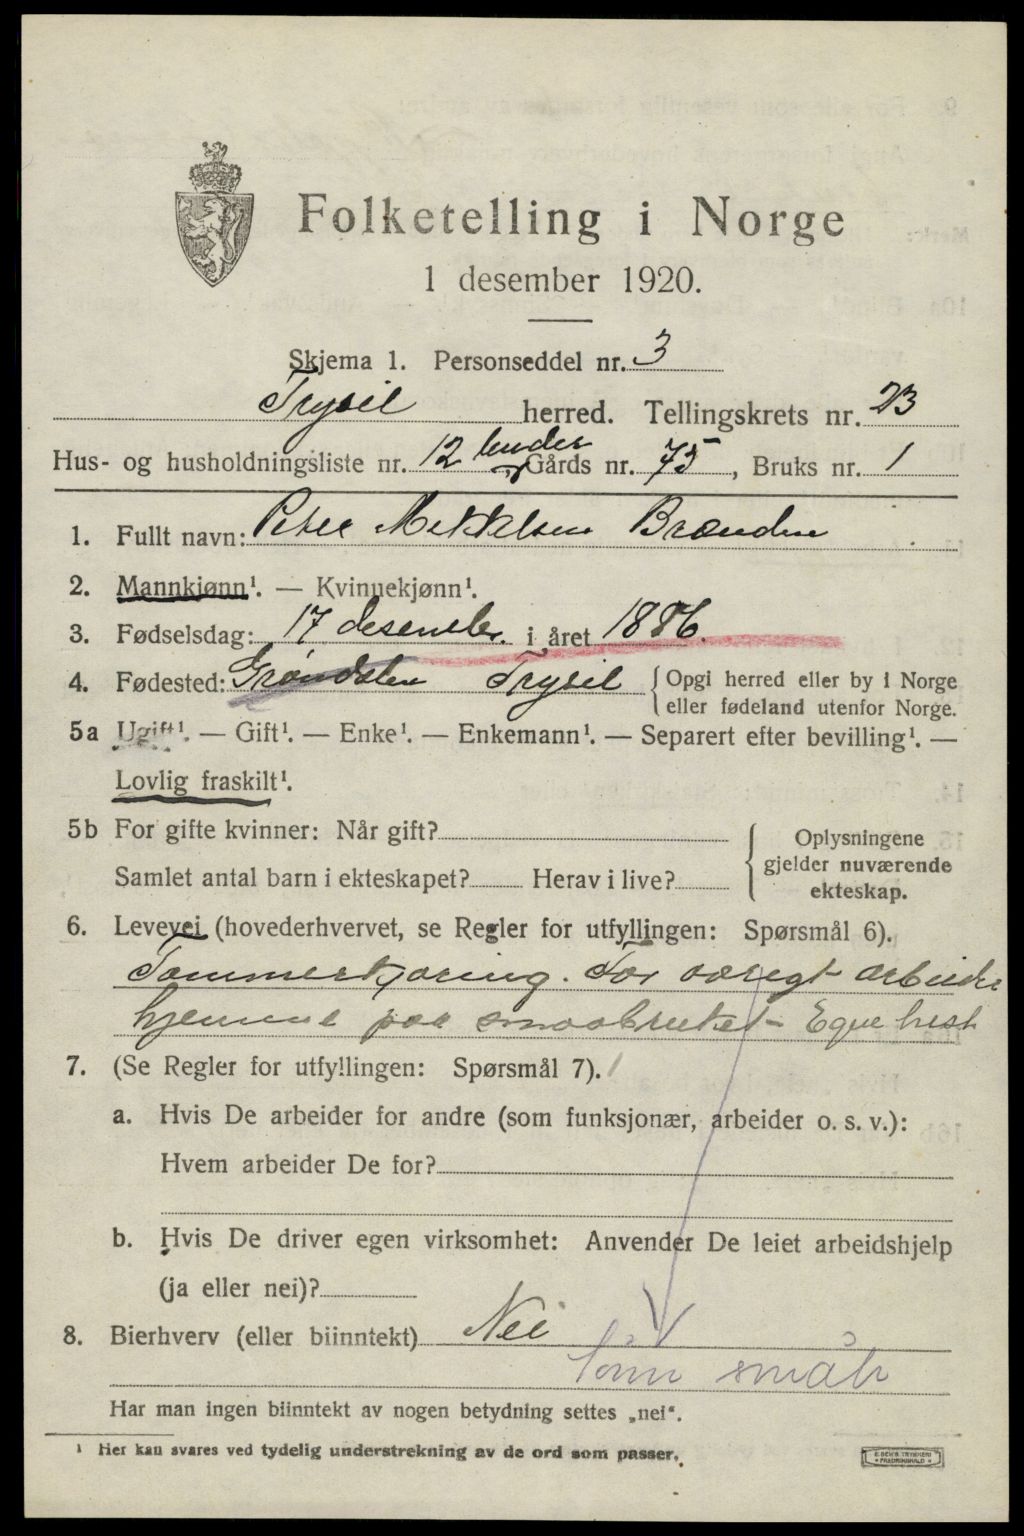 Folketelling i Norge
1 desember 1920.
Skjema 1. Personseddel nr. 3
Trysil herred. Tellingskrets nr. 23
Hus- og husholdningsliste nr. 12 Gårds nr. 75, Bruks nr. 1
1. Fullt navn: Peter Mikkelsen Brænden
2. Mannkjønn¹. — Kvinnekjønn¹.
3. Fødselsdag: 17 desember i året 1886.
4. Fødested: Grøndalen Trysil {Opgi herred eller by i Norge
eller fødeland utenfor Norge.
5a Ugift¹. — Gift¹. — Enke¹. — Enkemann¹. — Separert efter bevilling¹. —
Lovlig fraskilt¹.
5b For gifte kvinner: Når gift?
Samlet antal barn i ekteskapet? Herav i live?
Oplysningene
gjelder nuværende
ekteskap.
6. Levevei (hovederhvervet, se Regler for utfyllingen: Spørsmål 6).
Tømmerkjøring. For øvrigt arbeider
hjemme paa smaabruket Egne hest
7. (Se Regler for utfyllingen: Spørsmål 7).
a. Hvis De arbeider for andre (som funksjonær, arbeider o. s. v.):
Hvem arbeider De for?
b. Hvis De driver egen virksomhet: Anvender De leiet arbeidshjelp
(ja eller nei)?
8. Bierhverv (eller biinntekt) Nei
småb
Har man ingen biinntekt av nogen betydning settes „nei“.
¹ Her kan svares ved tydelig understrekning av de ord som passer.